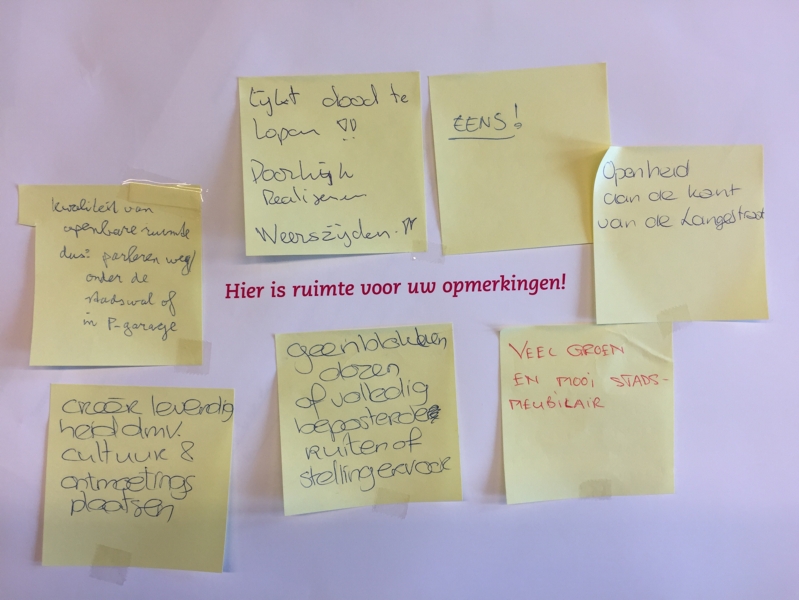 kwaliteit van
openbare ruimte
dus: parkeren weg/
onder de
stadswal of
in P-garage
Lijkt dood te
lopen !!
Doorkijk
Realiseren
Weerszijden.
EENS!
Openheid
aan de kant
van de Langestraat
Hier is ruimte voor uw opmerkingen!
creeër levendig
heid dmv.
cultuur &
ontmoetings
plaatsen
geen blokken
dozen
of volledig
beposterde
ruiten of
stellingervoor
VEEL GROEN
EN MOOI STADS-
MEUBILAIR